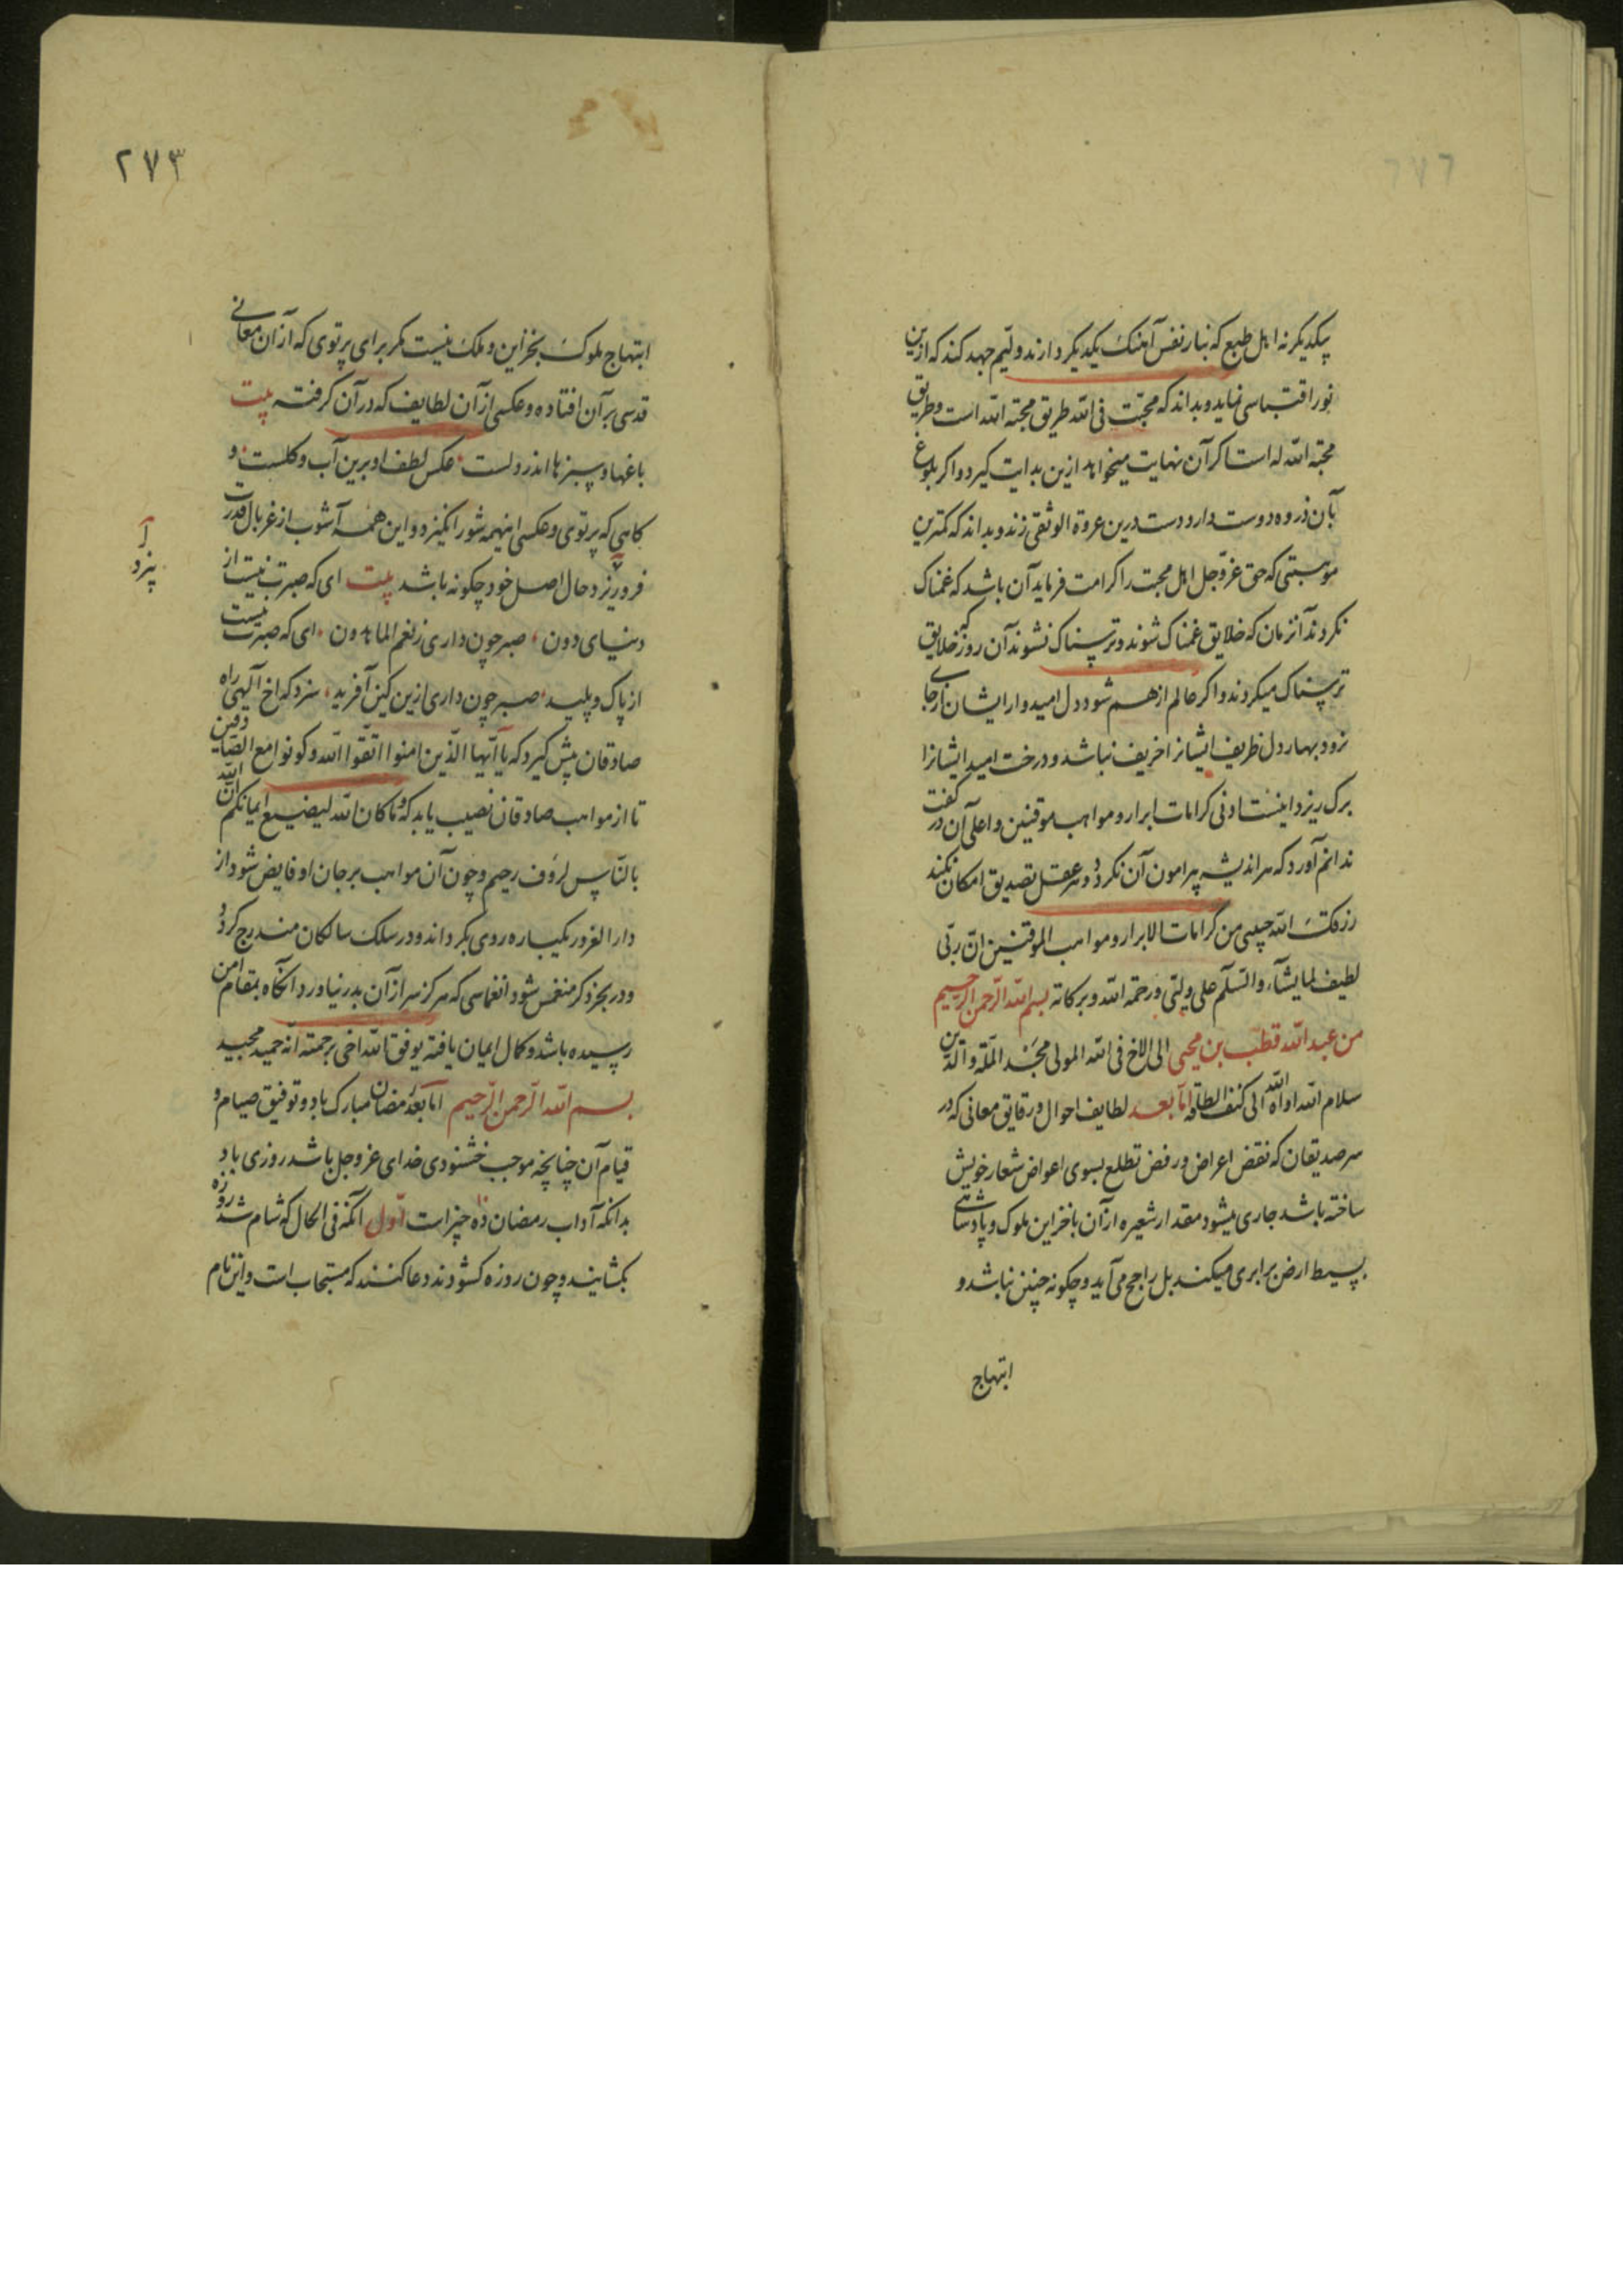 یکدیگر نه اهل طبع که بنار نفس آهنک یکدیگر دارند ولیّم جهد کند که ازین
نور اقتباسی نماید و بداند که محبّت فی الله طریق محبّة الله است و طریق
محبّة الله له است اکر آن نهایت میخواهد ازین بدایت کیرد و اکر بلوغ
بآن ذروه دوست دارد دست درین عروة الوثقی زند و بداند که کمترین
موهبتی که حق عزّوجل اهل محبت را کرامت فرماید آن باشد که غمناک
نکردند آنزمان که خلایق غمناک شوند و ترسناک نشوند آن روز که خلایق
ترسناک میکردند و اکر عالم از هم شود دل امیدوار ایشان از جای
نرود بهار دل ظریف ایشانرا خریف نباشد و درخت امید ایشانرا
برک ریزد اینست ادنی کرامات ابرار و مواهب موقنین و اعلی آن در کفت
ندانم آورد که هر اندیشه پیرامون آن نکردد و هر عقل تصدیق امکان نکند
رزقک الله حبیبی من کرامات الابرار و مواهب الموقنین انّ ربّی
لطیف لما یشآء والسّلم علی ولیّی و رحمة الله و برکاته بسم الله الرّحمن الرّحیم
من عبد الله قطب بن محیی الی الاخ فی الله المولی مجد الملّة والدّین
سلام الله اواه الله الی کنف الطافه امّا بعد لطایف احوال و رقایق معانی که در
سر صدیقان که نقض اعراض و رفض تطلع بسوی اعواض شعار خویش
ساخته باشد جاری میشود مقدار شعیره از آن با خزاین ملوک و پادشاهی
بسیط ارض برابری میکند بل راجح می آید و چکونه چنین نباشد و
ابتهاج
۲۷۳
ابتهاج ملوک بخزاین و ملک نیست مکر برای پرتوی که از آن معانی
قدسی بر آن افتاده و عکسی از آن لطایف که در آن کرفته بیت
باغها و سبزها اندر دلست عکس لطف او برین آب و کلست و
کاهی که پرتوی و عکسی اینهمه شور انکیزد و این همه آشوب از غربال قدرت
فرو ریزد حال اصل خود چکونه باشد بیت ای که صبرت نیست از
دنیای دون صبر چون داری ز نعم الماهدون ای که صبرت نیست
از پاک و پلید صبر چون داری ازین کین آفرید سزد که اخ آلهی راه
صادقان پیش کیرد که یا ایّها الّذین امنوا اتّقوا الله و کونوا مع الصّادقین
تا از مواهب صادقان نصیب یابد که و ما کان الله لیضیع ایمانکم انّ الله
بالنّاس لرؤف رحیم و چون آن مواهب بر جان او فایض شود از
دار الغرور یکباره روی بکرداند و در سلک سالکان مندرج کردد
و در بحر ذکر منغمس شود انغماسی که هرکز سر از آن بدر نیاورد آنکاه بمقام امن
رسیده باشد و کمال ایمان یافته یوفق الله اخی برحمته انّه حمید مجید
بسم الله الرّحمن الرّحیم امّا بعد رمضان مبارک باد و توفیق صیام و
قیام آن چنانچه موجب خشنودی خدای عزوجل باشد روزی باد
بدانکه آداب رمضان ده چیز است اوّل آنکه فی الحال که شام شد روزه
بکشایند و چون روزه کشودند دعا کنند که مستجاب است و این نام